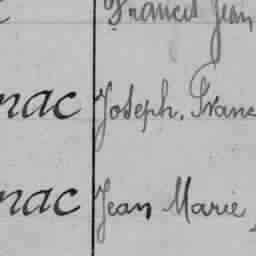 Francis Jean
nac Joseph, Franc
nac Jean Marie,